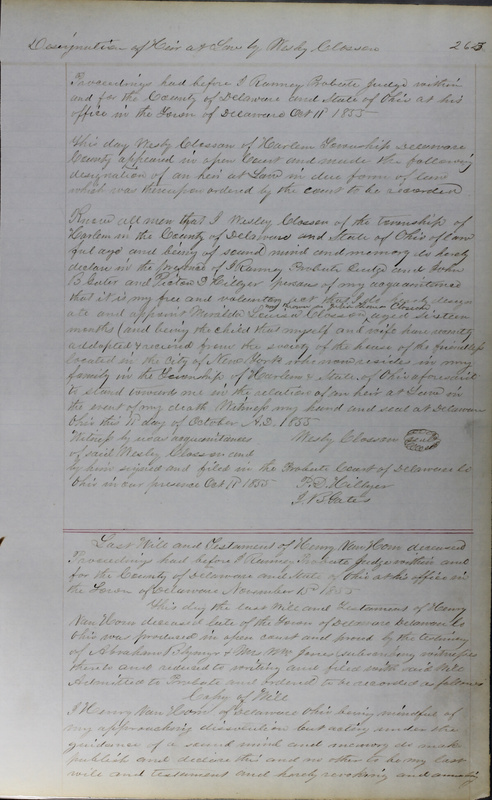 Designation of Heir at Law by Wesley Closson 263
Proceedings had before J Ranney Probate Judge within
and for the County of Delaware and State of Ohio at his
office in the Town of Delaware Oct 11 1855
This day Wesly Closson of Harlem Township Delaware
County appeared in open Court and made the following
designation of an heir at Law in due form of law
which was thereupon ordered by the court to be recorded
Know all men that I Wesley Closson of the township of
Harlem in the County of Delaware and State of Ohio of law
ful age and being of sound mind and memory do hereby
declare in the presence of J Ranney Probate Judge and John
B Gates and T Hillyer persons of my acquaintance
that it is my free and voluntary act that I do hereby design
ate and appoint Louisa Closson aged sixteen
months (and being the child that myself and wife have recently
adopted & received from the society of the house of the friendless
located in the City of New York who now resides in my
family in the Township of Harlem & State of Ohio aforesaid
to stand towards me in the relation of an heir at Law in
the event of my death Witness my hand and seal at Delaware
Ohio this 11 day of October A.D. 1855
Witness by us as acquaintances Wesly Closson seal
of said Wesley Closson and
by him signed and filed in the Probate Court of Delaware Co
Ohio in our presence Oct 11 1855 T. D. Hillyer
J. B Gates
Last Will and Testament of Henry Van Horn deceased
Proceedings had before J Ranney Probate Judge within and
for the County of Delaware and State of Ohio at his office in
the Town of Delaware November 15th 1855
This day the Last Will and Testament of Henry
Van Horn deceased late of the Town of Delaware Delaware Co
Ohio was produced in open court and proved by the testimony
of Abraham & Wm W Jones subscribing witnesses
thereto and reduced to writing and filed with said Will
Admitted to Probate and ordered to be recorded as follows
Copy of Will
I Henry Van Horn of Delaware Ohio being mindful of
my approaching dissolution but acting under the
guidance of a sound mind and memory do make
publish and declare this and no other to be my last
will and testament and hereby revoking and